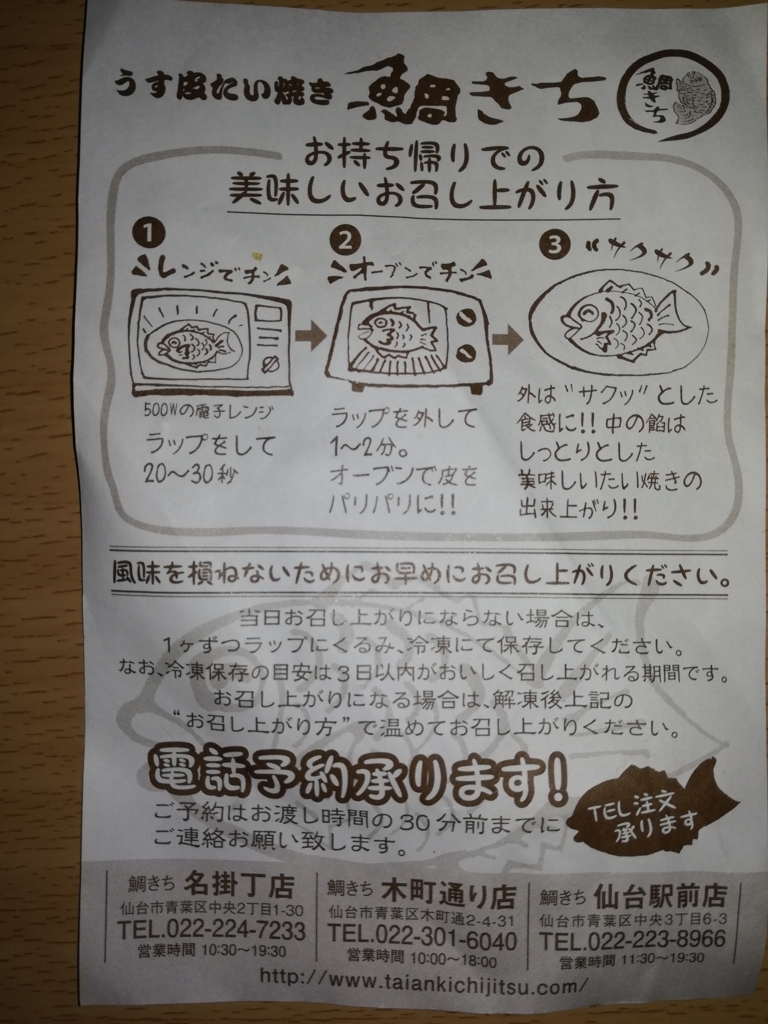 うす皮たい焼き 鯛きち
鯛きち
お持ち帰りでの
美味しいお召し上がり方
1
レンジでチン
500Wの電子レンジ
ラップをして
20〜30秒
2
オーブンでチン
ラップを外して
1〜2分。
オーブンで皮を
パリパリに!!
3
"サクサク"
外は"サクッ"とした
食感に!! 中の餡は
しっとりとした
美味しいたい焼きの
出来上がり!!
風味を損ねないためにお早めにお召し上がりください。
当日お召し上がりにならない場合は、
1ヶずつラップにくるみ、冷凍にて保存してください。
なお、冷凍保存の目安は3日以内がおいしく召し上がれる期間です。
お召し上がりになる場合は、解凍後上記の
"お召し上がり方"で温めてお召し上がりください。
電話予約承ります!
ご予約はお渡し時間の30分前までに
ご連絡お願い致します。
TEL注文
承ります
鯛きち 名掛丁店
仙台市青葉区中央2丁目1-30
TEL.022-224-7233
営業時間 10:30〜19:30
鯛きち 木町通り店
仙台市青葉区木町通2-4-31
TEL.022-301-6040
営業時間 10:00〜18:00
鯛きち 仙台駅前店
仙台市青葉区中央3丁目6-3
TEL.022-223-8966
営業時間 11:30〜19:30
http://www.taiankichijitsu.com/